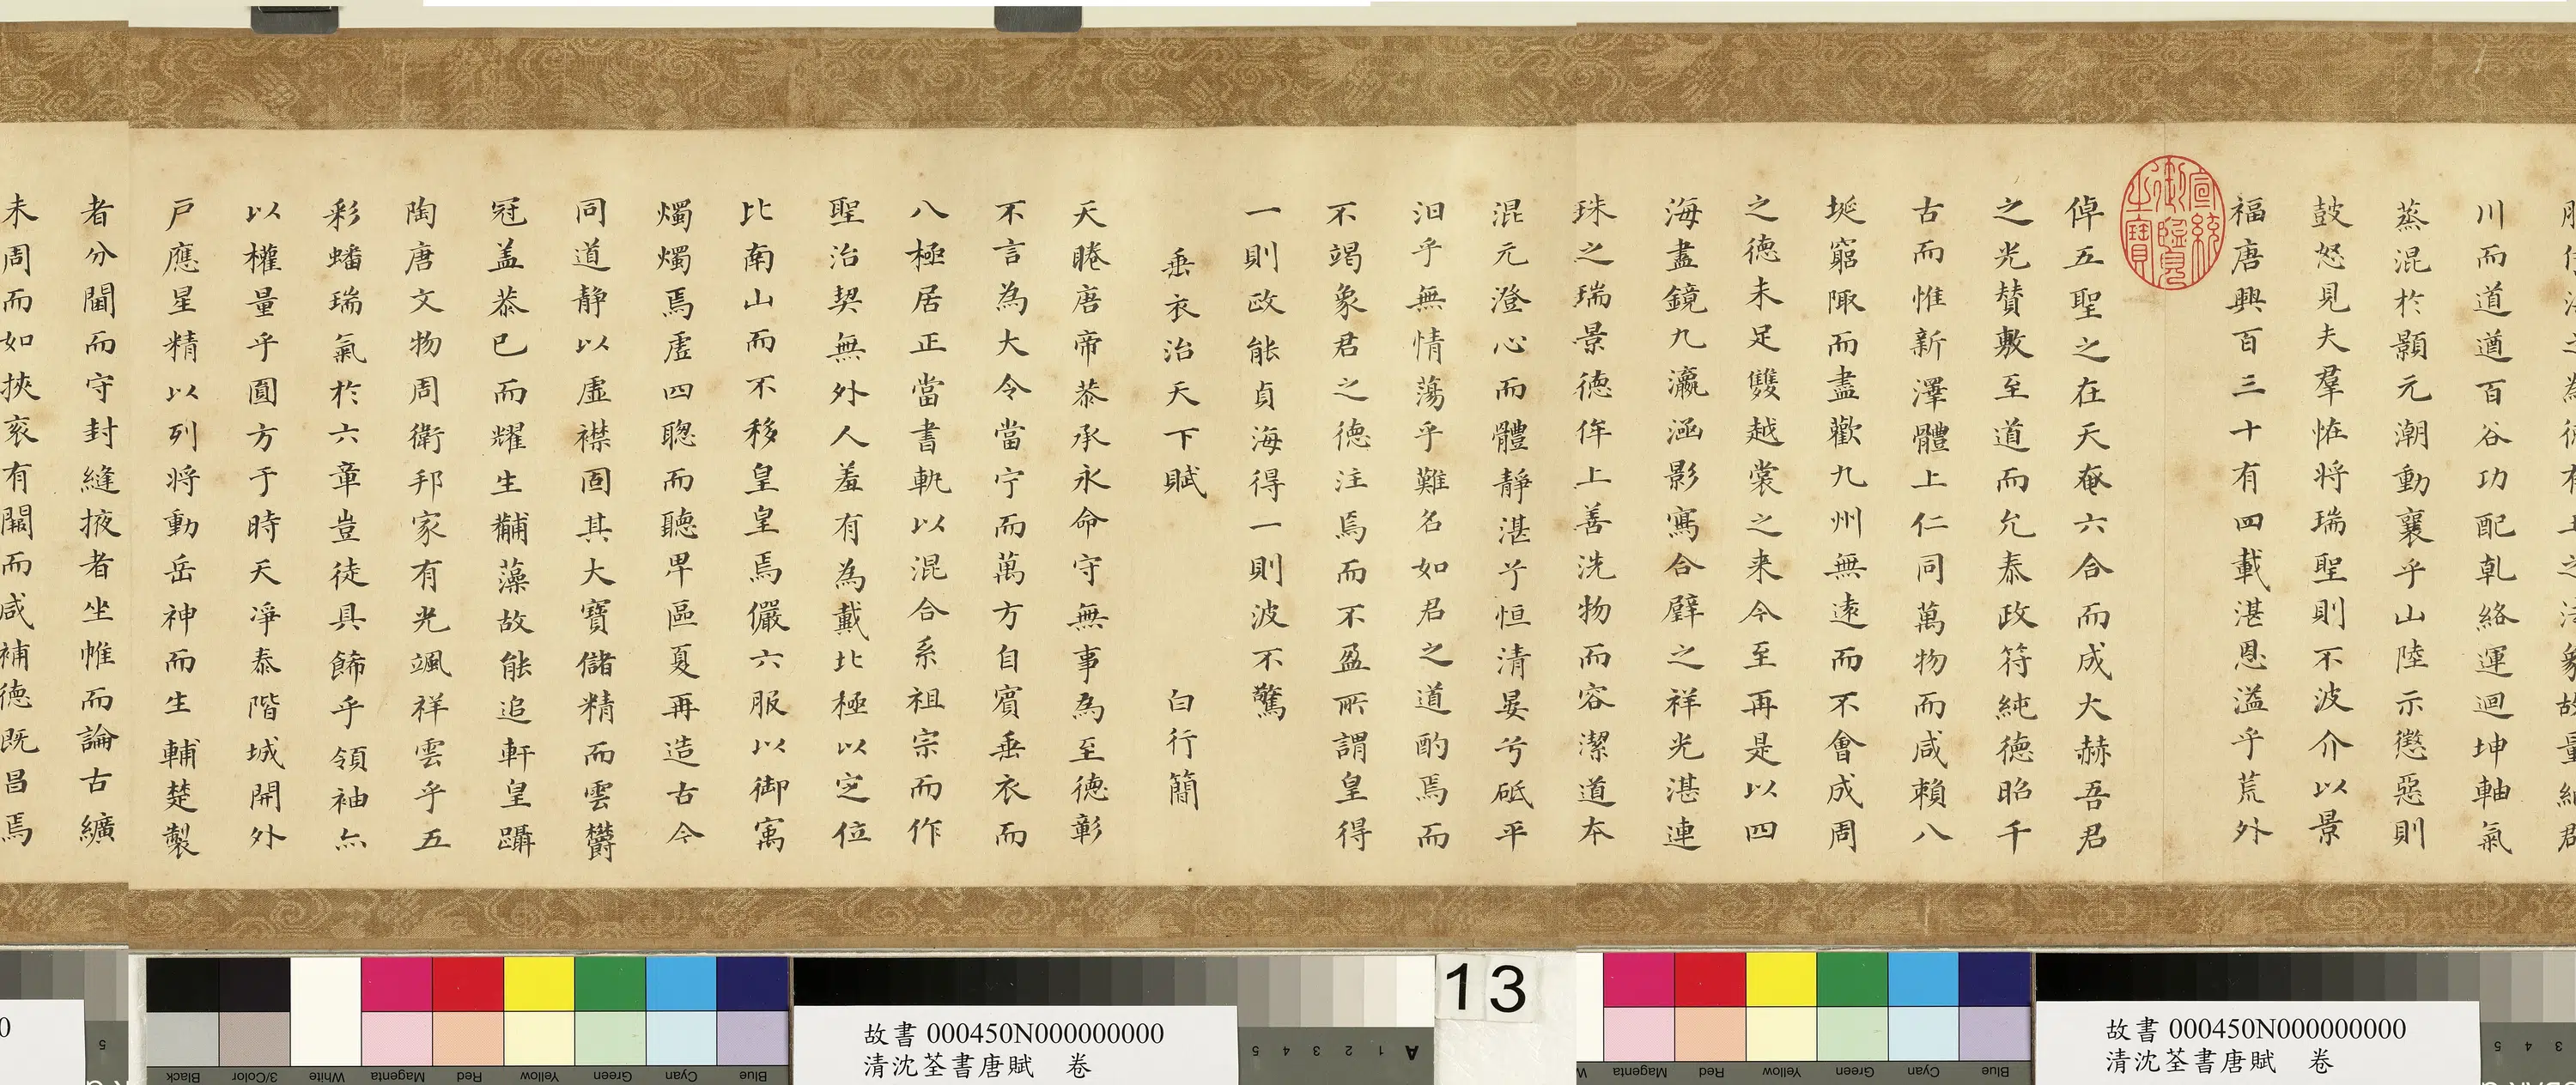 川而道遒百谷功配乾絡運迴坤軸氣
蒸混於顥元潮動襄乎山陸示懲惡則
鼓怒見夫羣恠将瑞聖則不波介以景
福唐興百三十有四載湛恩溢乎荒外
宣統御覽之寶
倬五聖之在天奄六合而成大赫吾君
之光賛敷至道而允泰政符純徳昭千
古而惟新澤體上仁同萬物而咸賴八
埏窮陬而盡歡九州無遠而不會成周
之徳未足雙越裳之来今至再是以四
海盡鏡九瀛涵影寫合璧之祥光湛連
珠之瑞景徳侔上善洗物而容潔道夲
混元澄心而體靜湛兮恒清晏兮砥平
汩乎無情蕩乎難名如君之道酌焉而
不竭象君之徳注焉而不盈所謂皇得
一則政能貞海得一則波不驚
垂衣治天下賦 白行簡
天睠唐帝恭承永命守無事為至徳彰
不言為大令當宁而萬方自賓垂衣而
八極居正當書軌以混合系祖宗而作
聖治契無外人羞有為戴北極以定位
比南山而不移皇皇焉儼六服以御寓
燭燭焉虛四聰而聽卑區夏再造古今
同道静以虛襟固其大寶儲精而雲欝
冠盖恭已而耀生黼藻故能追軒皇躡
陶唐文物周衛邦家有光颯祥雲乎五
彩蟠瑞氣於六章豈徒具飾乎領袖亦
以權量乎圓方于時天凈泰階城開外
戶應星精以列将動岳神而生輔楚製
者分閫而守封縫掖者坐帷而論古纊
未周而如挾袞有闕而咸補徳既昌焉
13
故書 000450N000000000
清沈荃書唐賦 卷
故書 000450N000000000
清沈荃書唐賦 卷
Black 3/Color White Magenta Red Yellow Green Cyan Blue
Magenta Red Yellow Green Cyan Blue
5 4 3 2 1 A